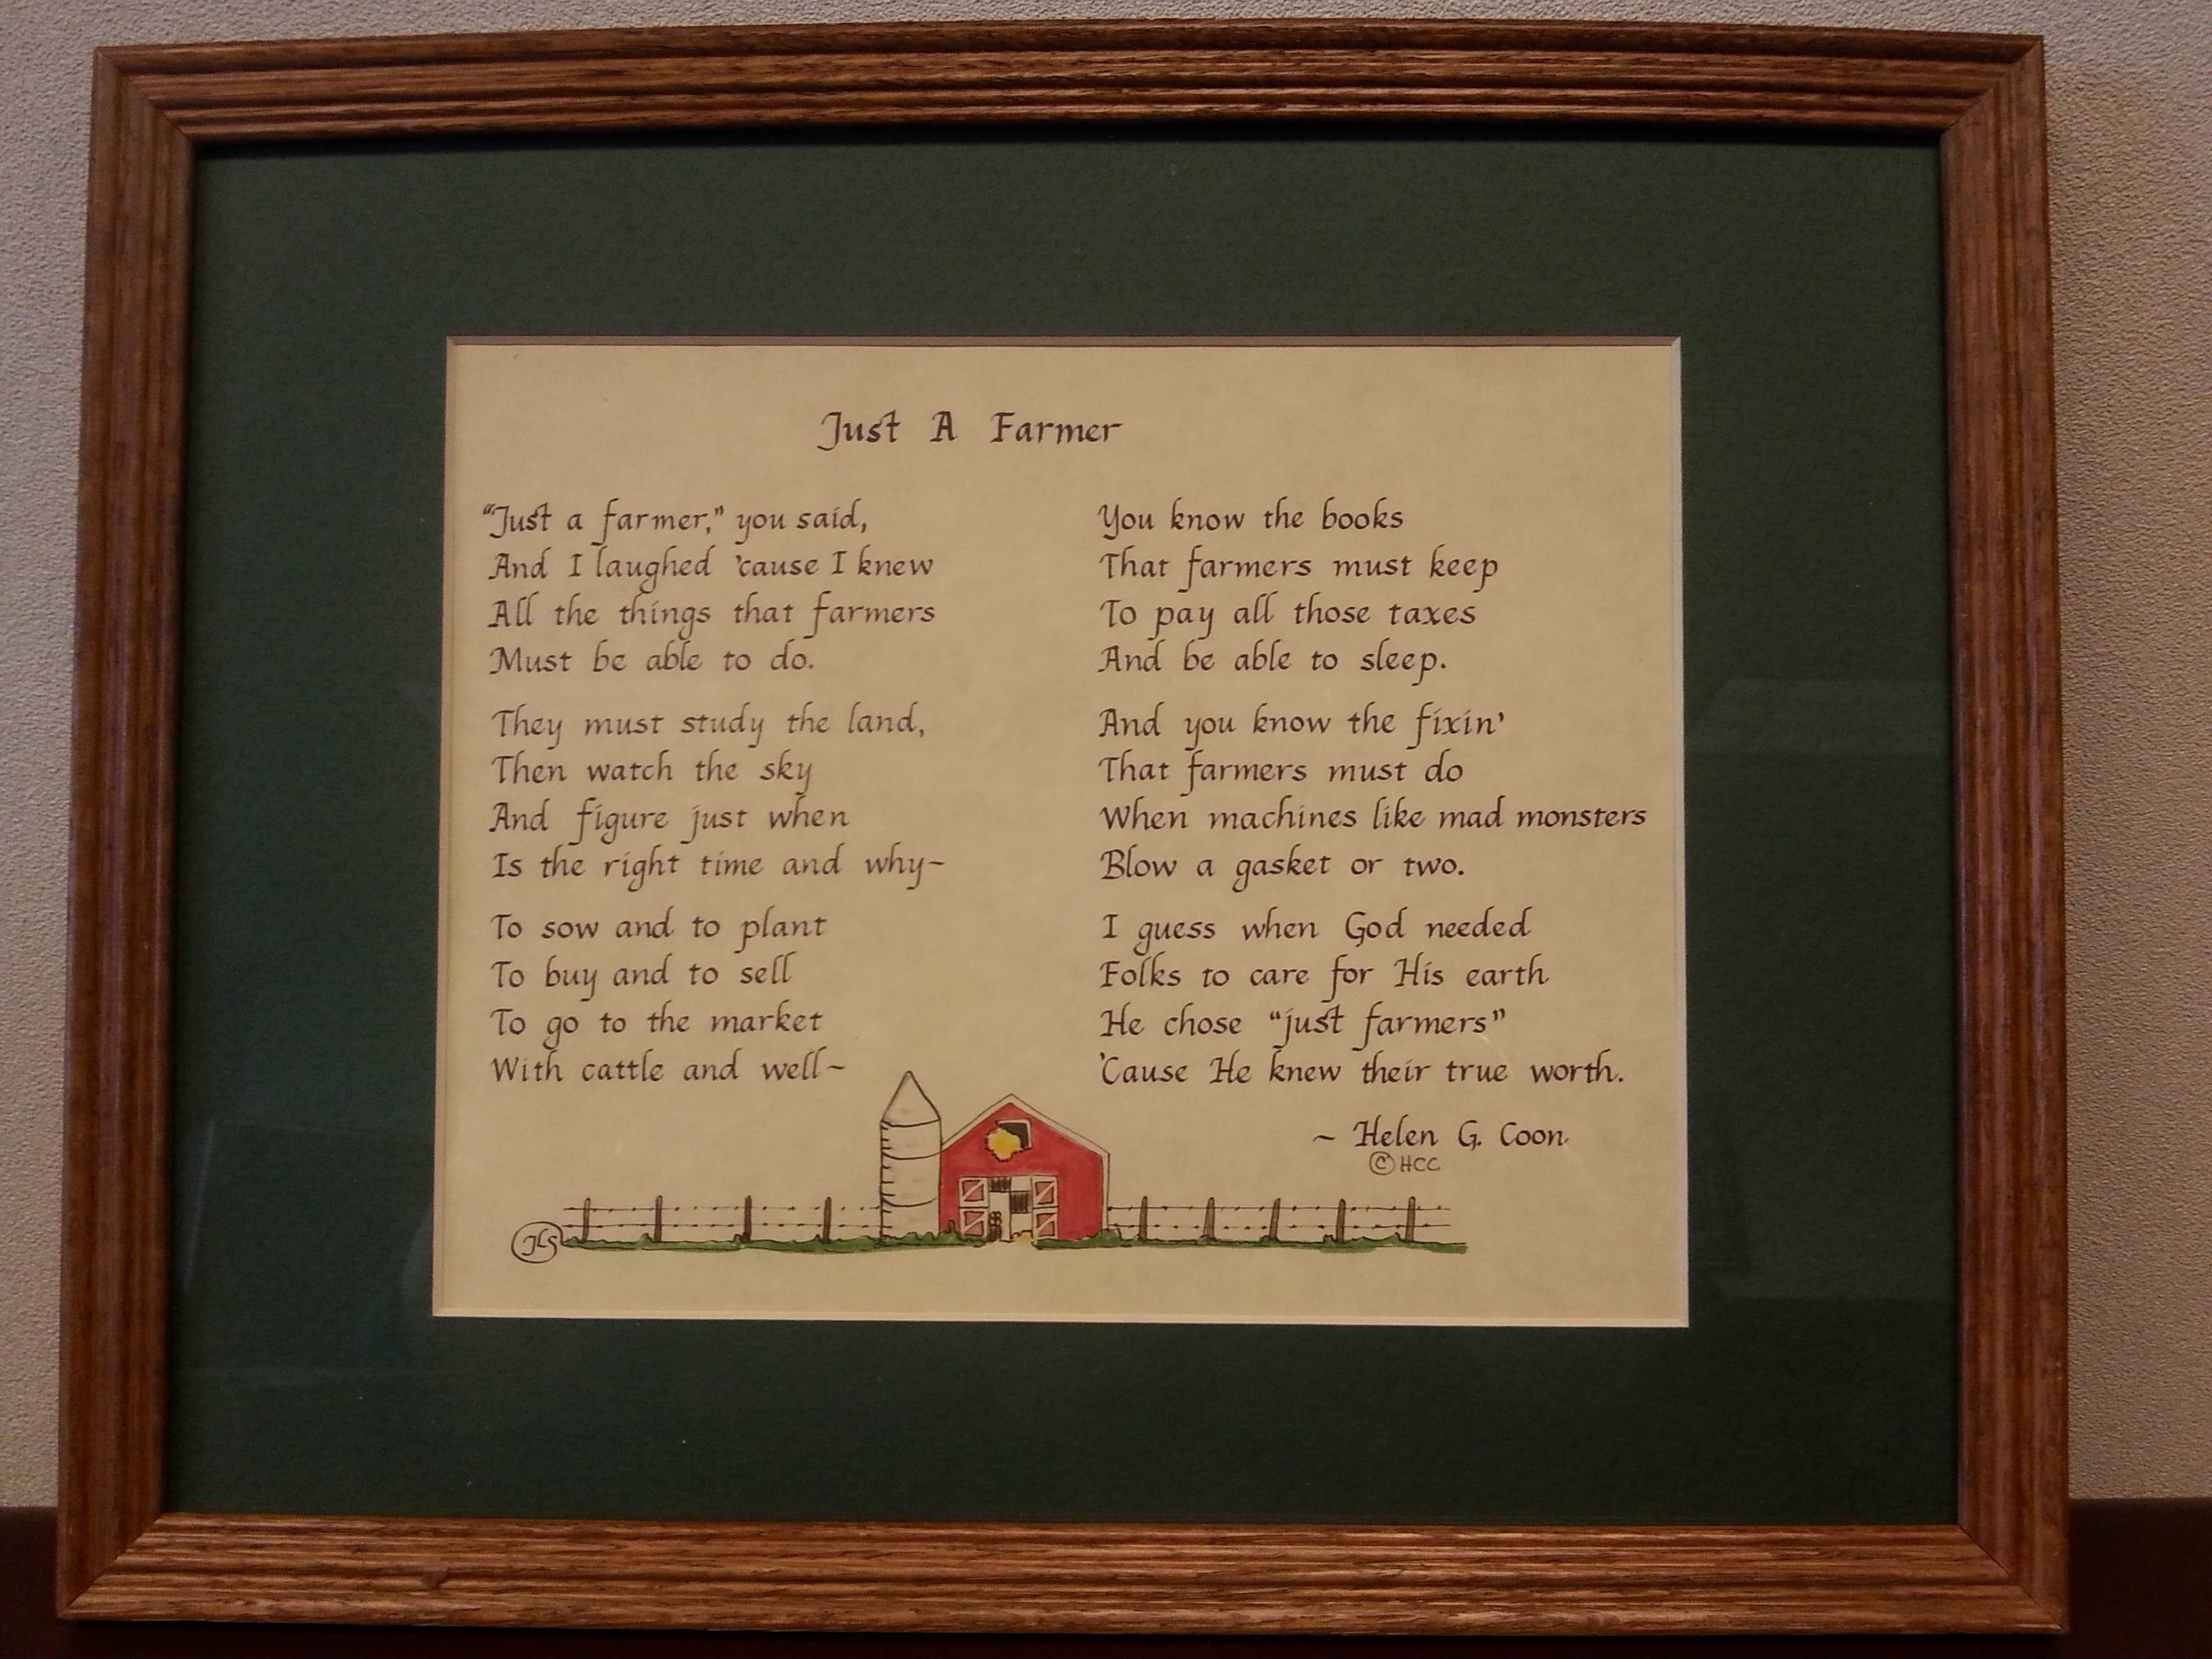 Just A Farmer
"Just a farmer," you said,
And I laughed 'cause I knew
All the things that farmers
Must be able to do.
They must study the land,
Then watch the sky
And figure just when
Is the right time and why~
To sow and to plant
To buy and to sell
To go to the market
With cattle and well~
You know the books
That farmers must keep
To pay all those taxes
And be able to sleep.
And you know the fixin'
That farmers must do
When machines like mad monsters
Blow a gasket or two.
I guess when God needed
Folks to care for His earth
He chose "just farmers"
'Cause He knew their true worth.
~ Helen G. Coon
© HCC
JLS